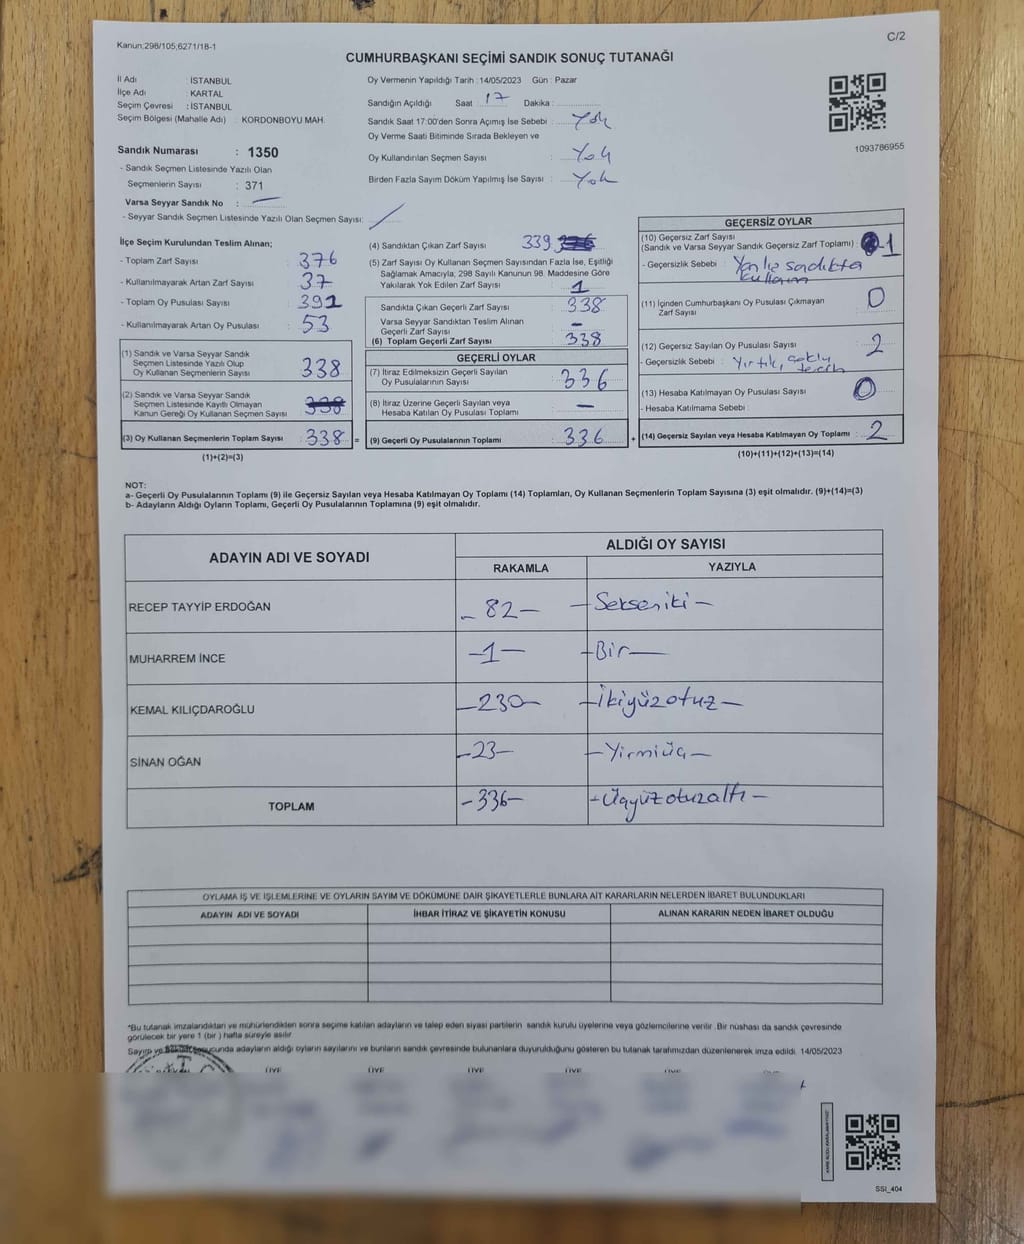 Kanun:298/105,6271/18-1
C/2
CUMHURBAŞKANI SEÇİMİ SANDIK SONUÇ TUTANAĞI
İl Adı : İSTANBUL
İlçe Adı : KARTAL
Seçim Çevresi : İSTANBUL
Seçim Bölgesi (Mahalle Adı) : KORDONBOYU MAH.
Sandık Numarası : 1350
- Sandık Seçmen Listesinde Yazılı Olan
Seçmenlerin Sayısı : 371
Varsa Seyyar Sandık No :
- Seyyar Sandık Seçmen Listesinde Yazılı Olan Seçmen Sayısı:
Oy Vermenin Yapıldığı Tarih : 14/05/2023 Gün : Pazar
Sandığın Açıldığı Saat 17 Dakika :
Sandık Saat 17:00'den Sonra Açımış İse Sebebi : Yok
Oy Verme Saati Bitiminde Sırada Bekleyen ve
Oy Kullandırılan Seçmen Sayısı : Yok
Birden Fazla Sayım Döküm Yapılmış İse Sayısı : Yok
1093786955
İlçe Seçim Kurulundan Teslim Alınan;
- Toplam Zarf Sayısı : 376
- Kullanılmayarak Artan Zarf Sayısı : 37
- Toplam Oy Pusulası Sayısı : 391
- Kullanılmayarak Artan Oy Pusulası : 53
(1) Sandık ve Varsa Seyyar Sandık
Seçmen Listesinde Yazılı Olup
Oy Kullanan Seçmenlerin Sayısı 338
(2) Sandık ve Varsa Seyyar Sandık
Seçmen Listesinde Kayıtlı Olmayan
Kanun Gereği Oy Kullanan Seçmen Sayısı
(3) Oy Kullanan Seçmenlerin Toplam Sayısı 338 =
(1)+(2)=(3)
(4) Sandıktan Çıkan Zarf Sayısı 339
(5) Zarf Sayısı Oy Kullanan Seçmen Sayısından Fazla İse, Eşitliği
Sağlamak Amacıyla; 298 Sayılı Kanunun 98. Maddesine Göre
Yakılarak Yok Edilen Zarf Sayısı : 1
Sandıkta Çıkan Geçerli Zarf Sayısı : 338
Varsa Seyyar Sandıktan Teslim Alınan
Geçerli Zarf Sayısı : -
(6) Toplam Geçerli Zarf Sayısı : 338
GEÇERLİ OYLAR
(7) İtiraz Edilmeksizin Geçerli Sayılan
Oy Pusulalarının Sayısı : 336
(8) İtiraz Üzerine Geçerli Sayılan veya
Hesaba Katılan Oy Pusulası Toplamı : -
(9) Geçerli Oy Pusulalarının Toplamı : 336 +
GEÇERSİZ OYLAR
(10) Geçersiz Zarf Sayısı
(Sandık ve Varsa Seyyar Sandık Geçersiz Zarf Toplamı) : 1
- Geçersizlik Sebebi : Yanlış sandıkta
kullanım
(11) İçinden Cumhurbaşkanı Oy Pusulası Çıkmayan
Zarf Sayısı 0
(12) Geçersiz Sayılan Oy Pusulası Sayısı : 2
- Geçersizlik Sebebi : Yırtık, çoklu
tercih
(13) Hesaba Katılmayan Oy Pusulası Sayısı : 0
- Hesaba Katılmama Sebebi :
(14) Geçersiz Sayılan veya Hesaba Katılmayan Oy Toplamı : 2
(10)+(11)+(12)+(13)=(14)
NOT:
a- Geçerli Oy Pusulalarının Toplamı (9) ile Geçersiz Sayılan veya Hesaba Katılmayan Oy Toplamı (14) Toplamları, Oy Kullanan Seçmenlerin Toplam Sayısına (3) eşit olmalıdır. (9)+(14)=(3)
b- Adayların Aldığı Oyların Toplamı, Geçerli Oy Pusulalarının Toplamına (9) eşit olmalıdır.
ADAYIN ADI VE SOYADI
ALDIĞI OY SAYISI
RAKAMLA YAZIYLA
RECEP TAYYİP ERDOĞAN - 82 - - Sekseniki -
MUHARREM İNCE - 1 - - Bir -
KEMAL KILIÇDAROĞLU - 230 - - İkiyüzotuz -
SİNAN OĞAN - 23 - - Yirmiüç -
TOPLAM - 336 - - Üçyüzotuzaltı -
OYLAMA İŞ VE İŞLEMLERİNE VE OYLARIN SAYIM VE DÖKÜMÜNE DAİR ŞİKAYETLERLE BUNLARA AİT KARARLARIN NELERDEN İBARET BULUNDUKLARI
ADAYIN ADI VE SOYADI İHBAR İTİRAZ VE ŞİKAYETİN KONUSU ALINAN KARARIN NEDEN İBARET OLDUĞU
*Bu tutanak imzalandıktan ve mühürlendikten sonra seçime katılan adayların ve talep eden siyasi partilerin sandık kurulu üyelerine veya gözlemcilerine verilir. Bir nüshası da sandık çevresinde
görülecek bir yere 1 (bir ) hafta süreyle asılır
Sayım ve sonucunda adayların aldığı oyların sayılarını ve bunların sandık çevresinde bulunanlara duyurulduğunu gösteren bu tutanak tarafımızdan düzenlenerek imza edildi. 14/05/2023
ÜYE ÜYE ÜYE ÜYE ÜYE ÜYE
SSİ_404